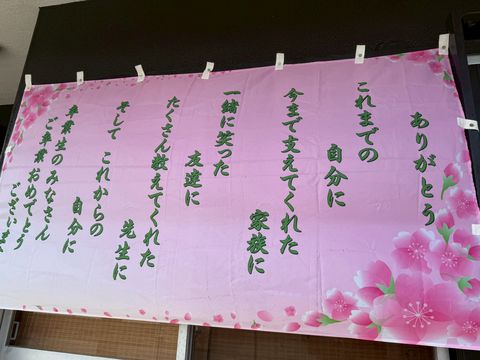 ありがとう
これまでの
自分に
今まで支えてくれた
家族に
一緒に笑った
友達に
たくさん教えてくれた
先生に
そして これからの
自分に
卒業生のみなさん
ご卒業おめでとう
ございま